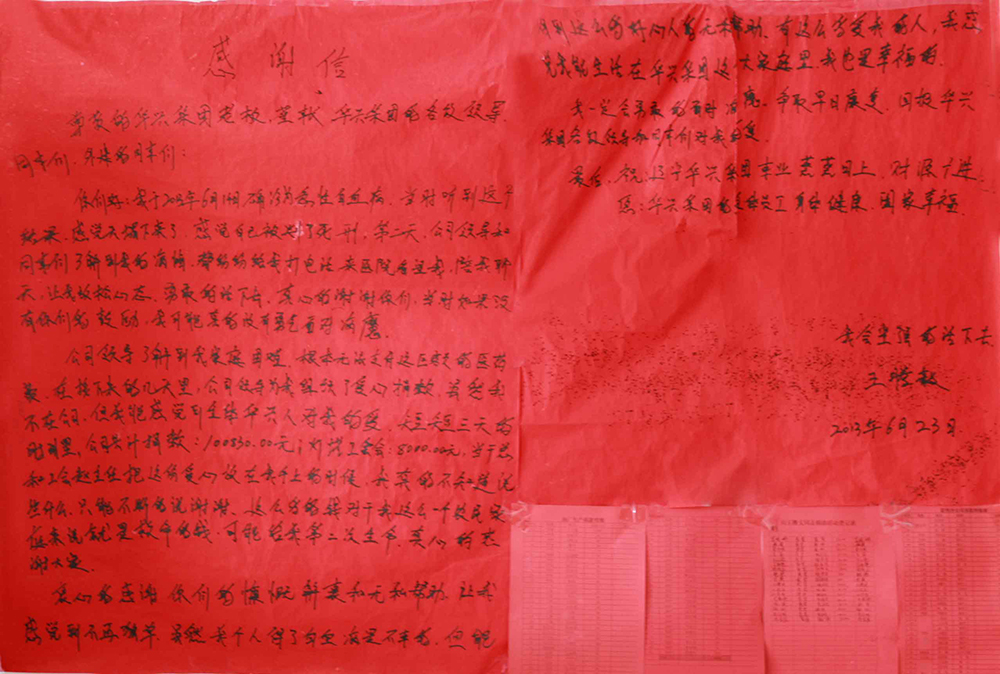 感谢信
尊敬的华兴集团老板、董秘、华兴集团的各级领导
同事们、外建的同事们：
你们好：我于2013年6月14日确诊为急性白血病。当时听到这个
结果，感觉天塌下来了，感觉自己被判了死刑，第二天，公司领导和
同事们了解到我的病情，都纷纷给我打电话来医院看望我，陪我聊
天，让我放松心态，勇敢的活下去，真心的谢谢你们，当时如果没
有你们的鼓励，我可能真的没有勇气面对病魔。
公司领导了解到我家庭困难，根本无法支付这巨额的医药
费，在接下来的几天里，公司领导为我组织了爱心捐款，虽然我
不在公司，但我能感觉到全体华兴人对我的爱，短短三天的
时间里，公司共计捐款：100830.00元；工委会：8000.00元，当于总
和工会赵主任把这份爱心放在我手上的时候，我真的不知道说
些什么，只能不断的说谢谢，这么多的钱对于我这么一个农民家
庭来说就是救命的钱，可能给我第二次生命，真心的感
谢大家。
衷心的感谢你们的慷慨解囊和无私帮助，让我
感觉到不再孤单，虽然我个人得了白血病是不幸的，但能
得到这么多好心人的无私帮助，有这么多爱我的人，我感
觉我能生活在华兴集团这个大家庭里我也是幸福的。
我一定会勇敢的面对病魔，争取早日康复，回报华兴
集团各级领导和同事们对我的爱
最后，祝愿华兴集团事业蒸蒸日上，财源广进
华兴集团的全体员工身体健康，阖家幸福
我会坚强的活下去
王晓敏
2013年6月23日